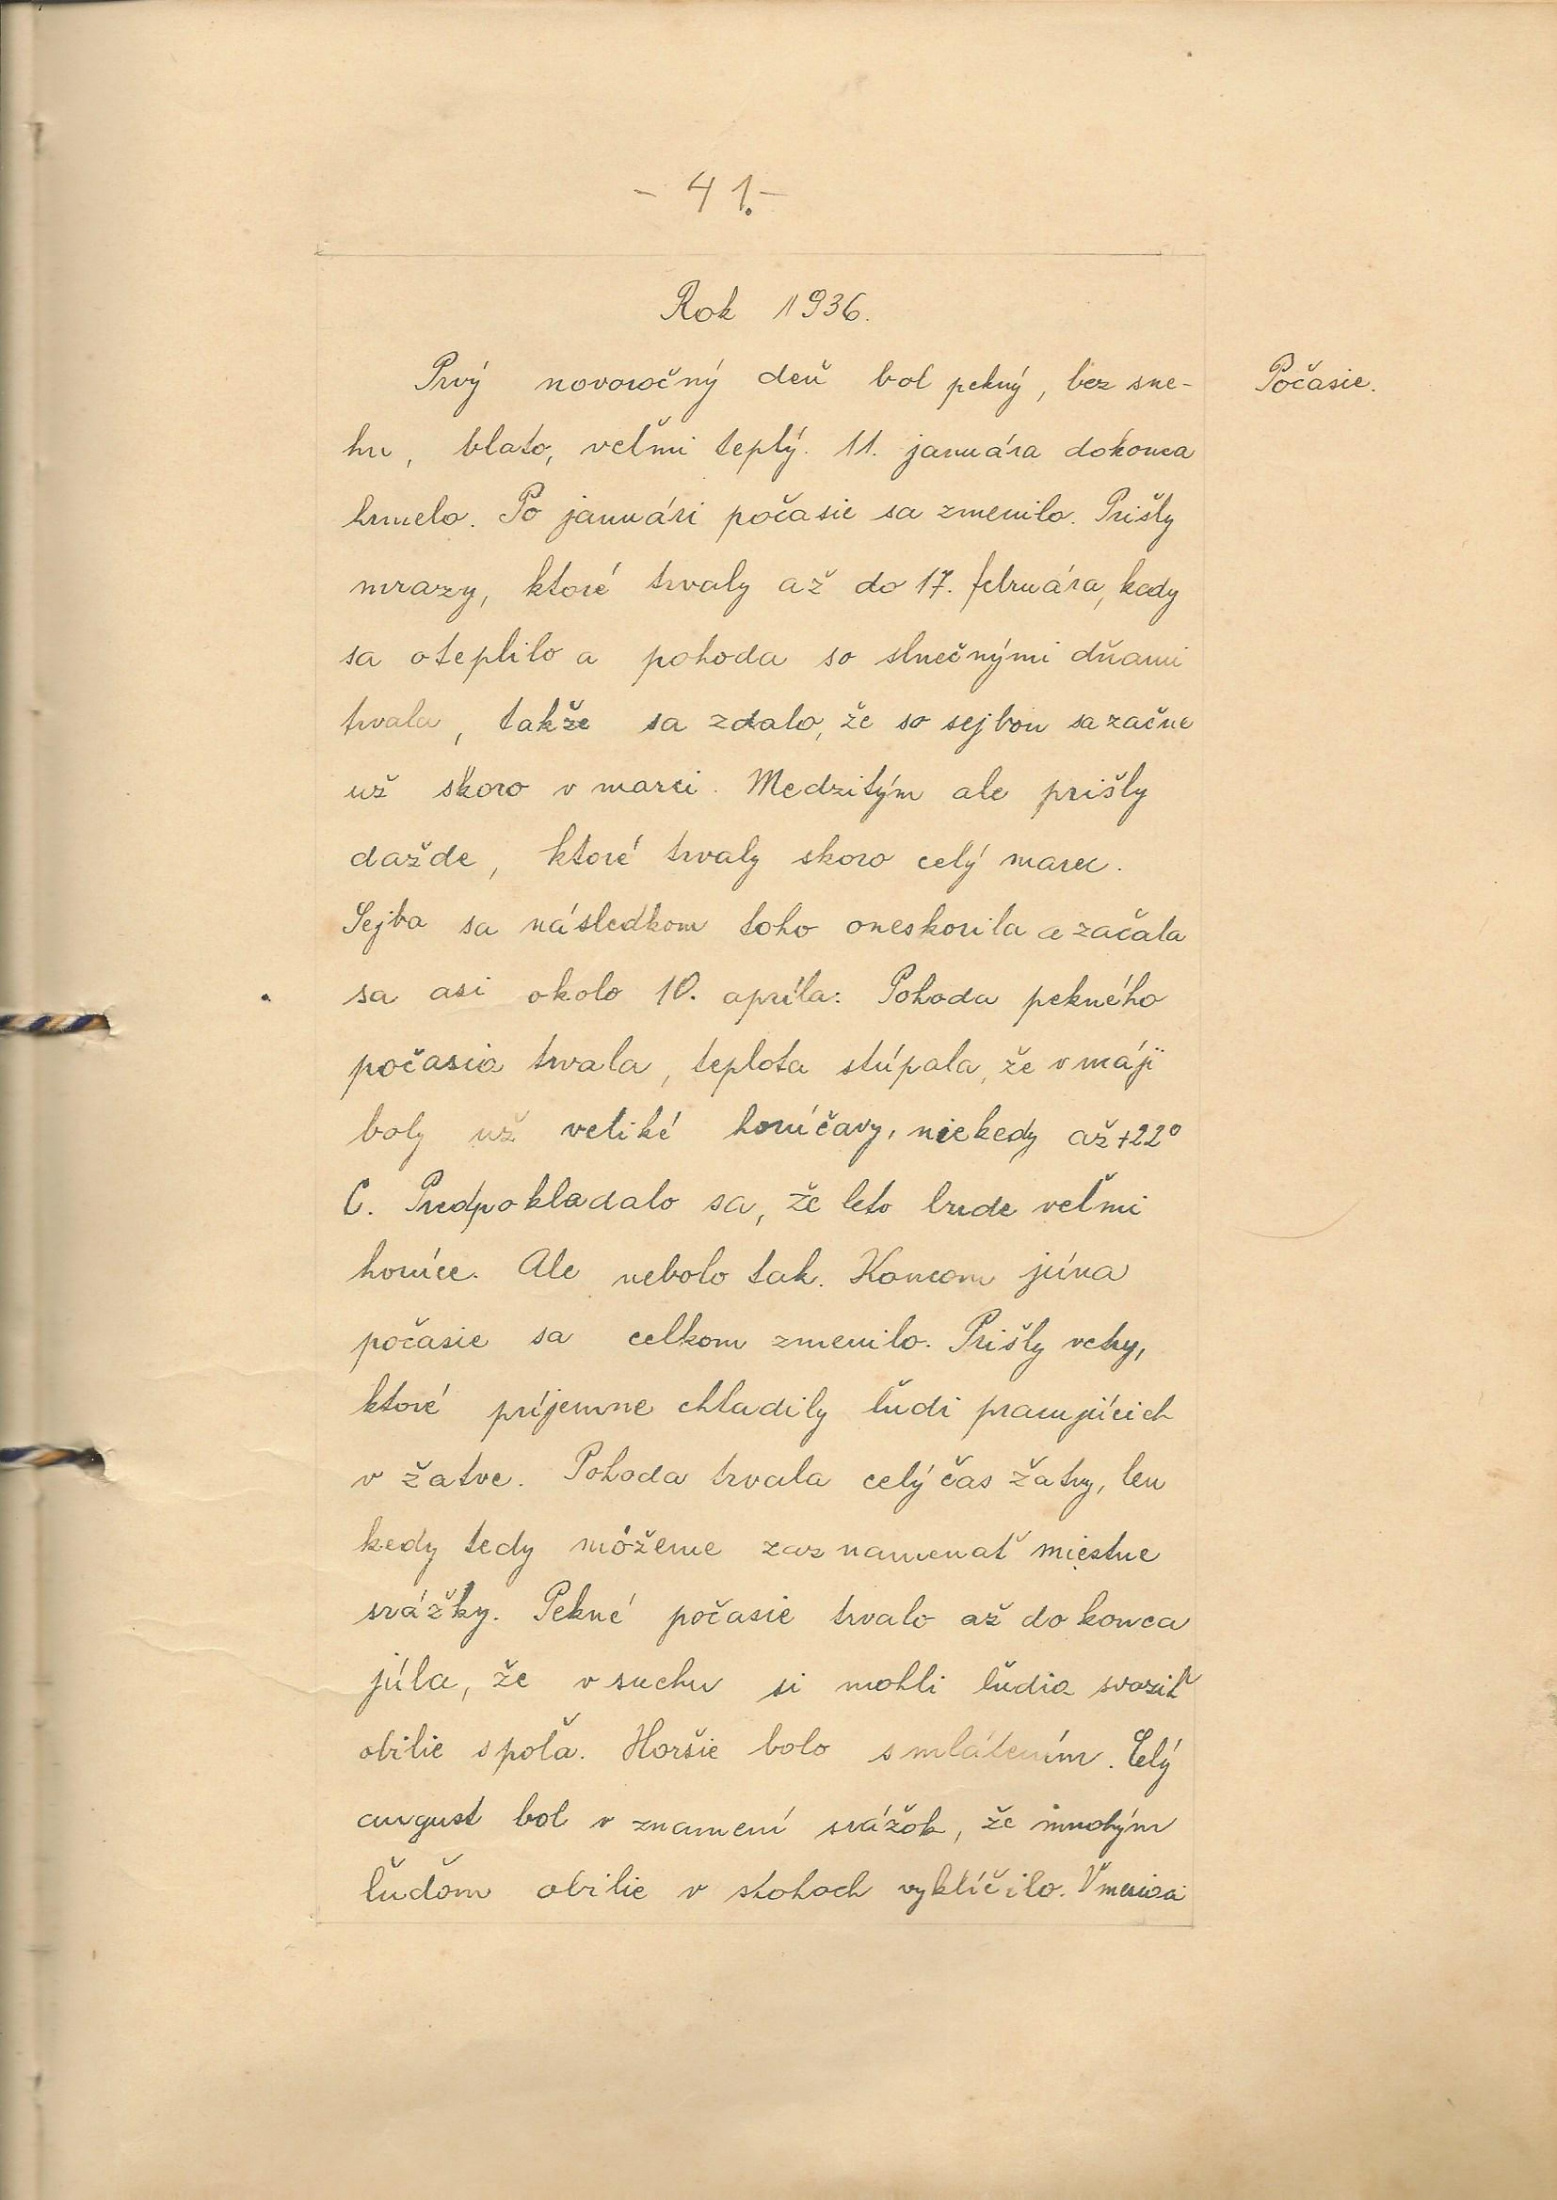 - 41.-
Rok 1936.
Prvý novoročný deň bol pekný, bez sne-
Počasie.
hu, blato, veľmi teplý. 11. januára dokonca
hrmelo. Po januári počasie sa zmenilo. Prišly
mrazy, ktoré trvaly až do 17. februára, kedy
sa oteplilo a pohoda so slnečnými dňami
trvala, takže sa zdalo, že so sejbou sa začne
už skoro v marci. Medzitým ale prišly
dažde, ktoré trvaly skoro celý marec.
Sejba sa následkom toho oneskorila a začala
sa asi okolo 10. apríla. Pohoda pekného
počasia trvala, teplota stúpala, že v máji
boly už veliké horúčavy, niekedy až +22°
C. Predpokladalo sa, že leto bude veľmi
horúce. Ale nebolo tak. Koncom júna
počasie sa celkom zmenilo. Prišly vetry,
ktoré príjemne chladily ľudi pracujúcich
v žatve. Pohoda trvala celý čas žatvy, len
kedy tedy môžeme zaznamenať miestne
srážky. Pekné počasie trvalo až do konca
júla, že v suchu si mohli ľudia svoziť
obilie spoľa. Horšie bolo s mlátením. Celý
august bol v znamení srážok, že mnohým
ľuďom obilie v stohoch vyklíčilo. V mesiaci